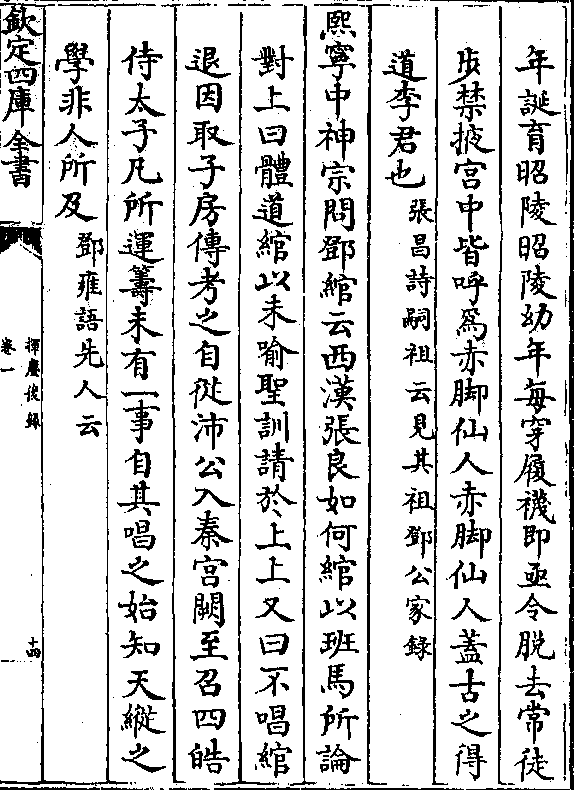 年誕育昭陵昭陵幼年每穿履襪即亟令脱去常徒
步禁掖宫中皆呼爲赤脚仙人赤脚仙人蓋古之得
道李君也張昌詩嗣祖云見其祖鄧公家錄
熙寧中神宗問鄧綰云西漢張良如何綰以班馬所論
對上曰體道綰以未喻聖訓請於上上又曰不唱綰
退因取子房傳考之自從沛公入秦宫闕至召四皓
侍太子凡所運籌未有一事自其唱之始知天縱之
學非人所及鄧雍語先人云
欽定四庫全書
揮麈後錄
卷一
十四